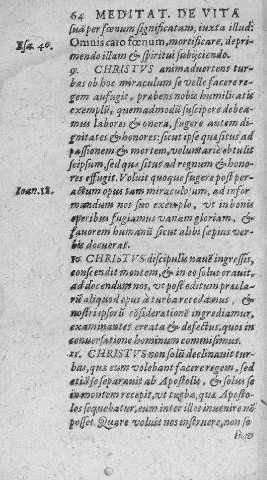 64 MEDITAT. DE VITA
suã per fœnum significatam, iuxta illud:
Esa. 40.
Omnis caro fœnum, mortificare, deprimendo
illam & spiritui subijciendo.
9. CHRISTVS animaduertens turbas
ob hoc miraculum se velle facere regem
aufugit, præbens nobis humilitatis
exemplũ, quemadmodũ suscipere debeamus
labores & onera, fugere autem dignitates
& honores: sicut ipse qua situs ad
passionem & mortem, volũtariè obtulit
seipsum, sed quæsitus ad regnum & honores
effugit. Voluit quoque fugere post peractum
opus tam miraculosum, ad informandum
Ioan. 18.
nos suo exemplo, vt in bonis
operibus fugiamus vanam gloriam, &
fauorem humanũ sicut alibi sæpius verbis
docuerat.
10. CHRISTVS discipulis nauẽ ingressis,
conscendit montem, & in eo solus orauit,
ad docendum nos, vt post editum præclarũ
aliquod opus à turba recedamus, &
nostri ipsorũ cõsiderationẽ ingrediamur,
examinantes errata & defectus, quos in
conuersatione hominum commisimus.
11. CHRISTVS non solũ declinauit turbas,
quæ eum volebant facere regem, sed
etiã se separauit ab Apostolis, & solus se
in montem recepit, vt turba, quæ Apostolos
sequebatur, eum inter illos inuenire nõ
posset. Quare voluit nos instruere, non so